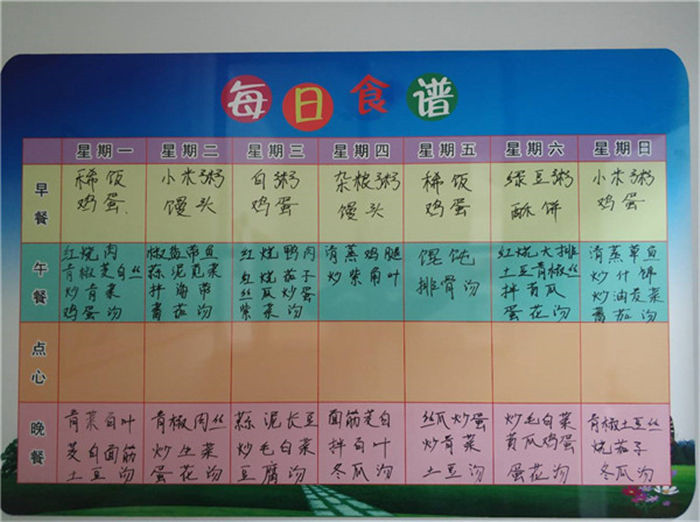 每日食谱
星期一 星期二 星期三 星期四 星期五 星期六 星期日
早餐
稀饭 小米粥 白粥 杂粮粥 稀饭 绿豆粥 小米粥
鸡蛋 馒头 鸡蛋 馒头 鸡蛋 酥饼 鸡蛋
午餐
红烧肉 椒盐带鱼 红烧鸭肉 清蒸鸡腿 馄饨 红烧大排 清蒸草鱼
青椒茭白丝 蒜泥苋菜 红烧茄子 炒紫角叶 排骨汤 土豆青椒丝 炒什锦
炒青菜 拌海带 丝瓜炒蛋 拌黄瓜 炒油麦菜
鸡蛋汤 番茄汤 紫菜汤 蛋花汤 番茄汤
点心
晚餐
青菜百叶 青椒肉丝 蒜泥长豆 面筋茭白 丝瓜炒蛋 炒毛白菜 青椒土豆丝
茭白面筋 炒生菜 炒毛白菜 拌百叶 炒青菜 黄瓜鸡蛋 烧茄子
土豆汤 蛋花汤 豆腐汤 冬瓜汤 土豆汤 蛋花汤 冬瓜汤